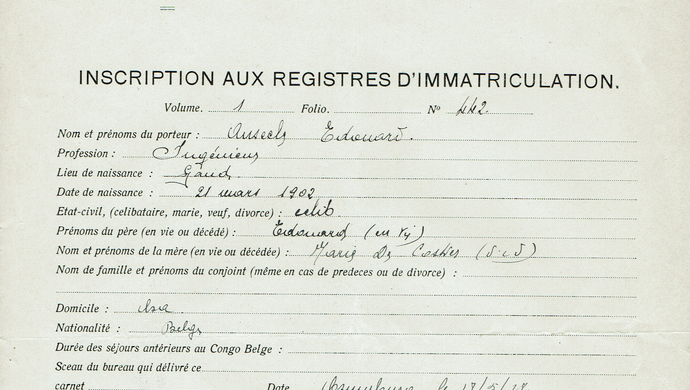 INSCRIPTION AUX REGISTRES D'IMMATRICULATION.
Volume. 1 Folio. Nº 442
Nom et prénoms du porteur : Anseele Edouard.
Profession : Ingénieur
Lieu de naissance : Gand
Date de naissance : 21 mars 1902
Etat-civil, (celibataire, marie, veuf, divorce) : celib.
Prénoms du père (en vie ou décédé) : Edouard (en vie)
Nom et prénoms de la mère (en vie ou décédée) : Marie De
Nom de famille et prénoms du conjoint (même en cas de predeces ou de divorce) :
Domicile :
Nationalité : Belge
Durée des séjours antérieurs au Congo Belge :
Sceau du bureau qui délivré ce
carnet Date le